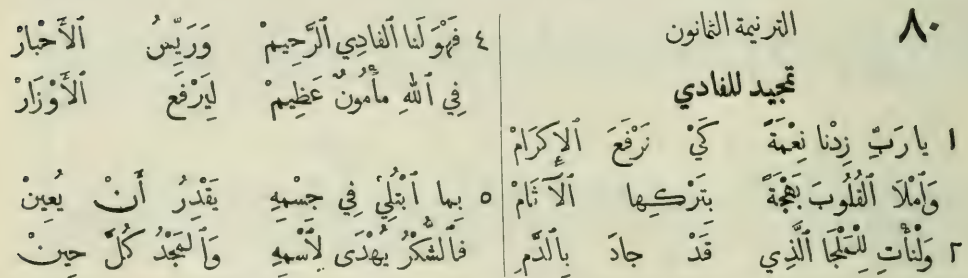 ٨٠
الترنيمة الثمانون
تمجيد للفادي
١ يا رَبِّ زِدْنا نِعْمَةً كَيْ نَرْفَعَ ٱلإِكرَامْ
وَٱمْلَا ٱلْقُلُوبَ بَهْجَةً بِتَرْكِها ٱلآثَامْ
٢ وَلْنَأْتِ لِلْمَلْجَا ٱلَّذِي قَدْ جادَ بِالدَّمِ
٤ فَهْوَ لَنا ٱلفادِي ٱلرَّحِيمْ وَرَيِّسُ ٱلأَحْبارْ
فِي ٱللهِ مأْمُونٌ عَظِيمْ لِيَرْفَعَ ٱلأَوْزَارْ
٥ بِما ٱبْتُلِيْ فِي جِسْمِهِ يَقْدِرُ أَنْ يُعِينْ
فَٱلشُّكْرُ يُهْدَى لِٱسْمِهِ وَٱلمَجْدُ كُلَّ حِينْ